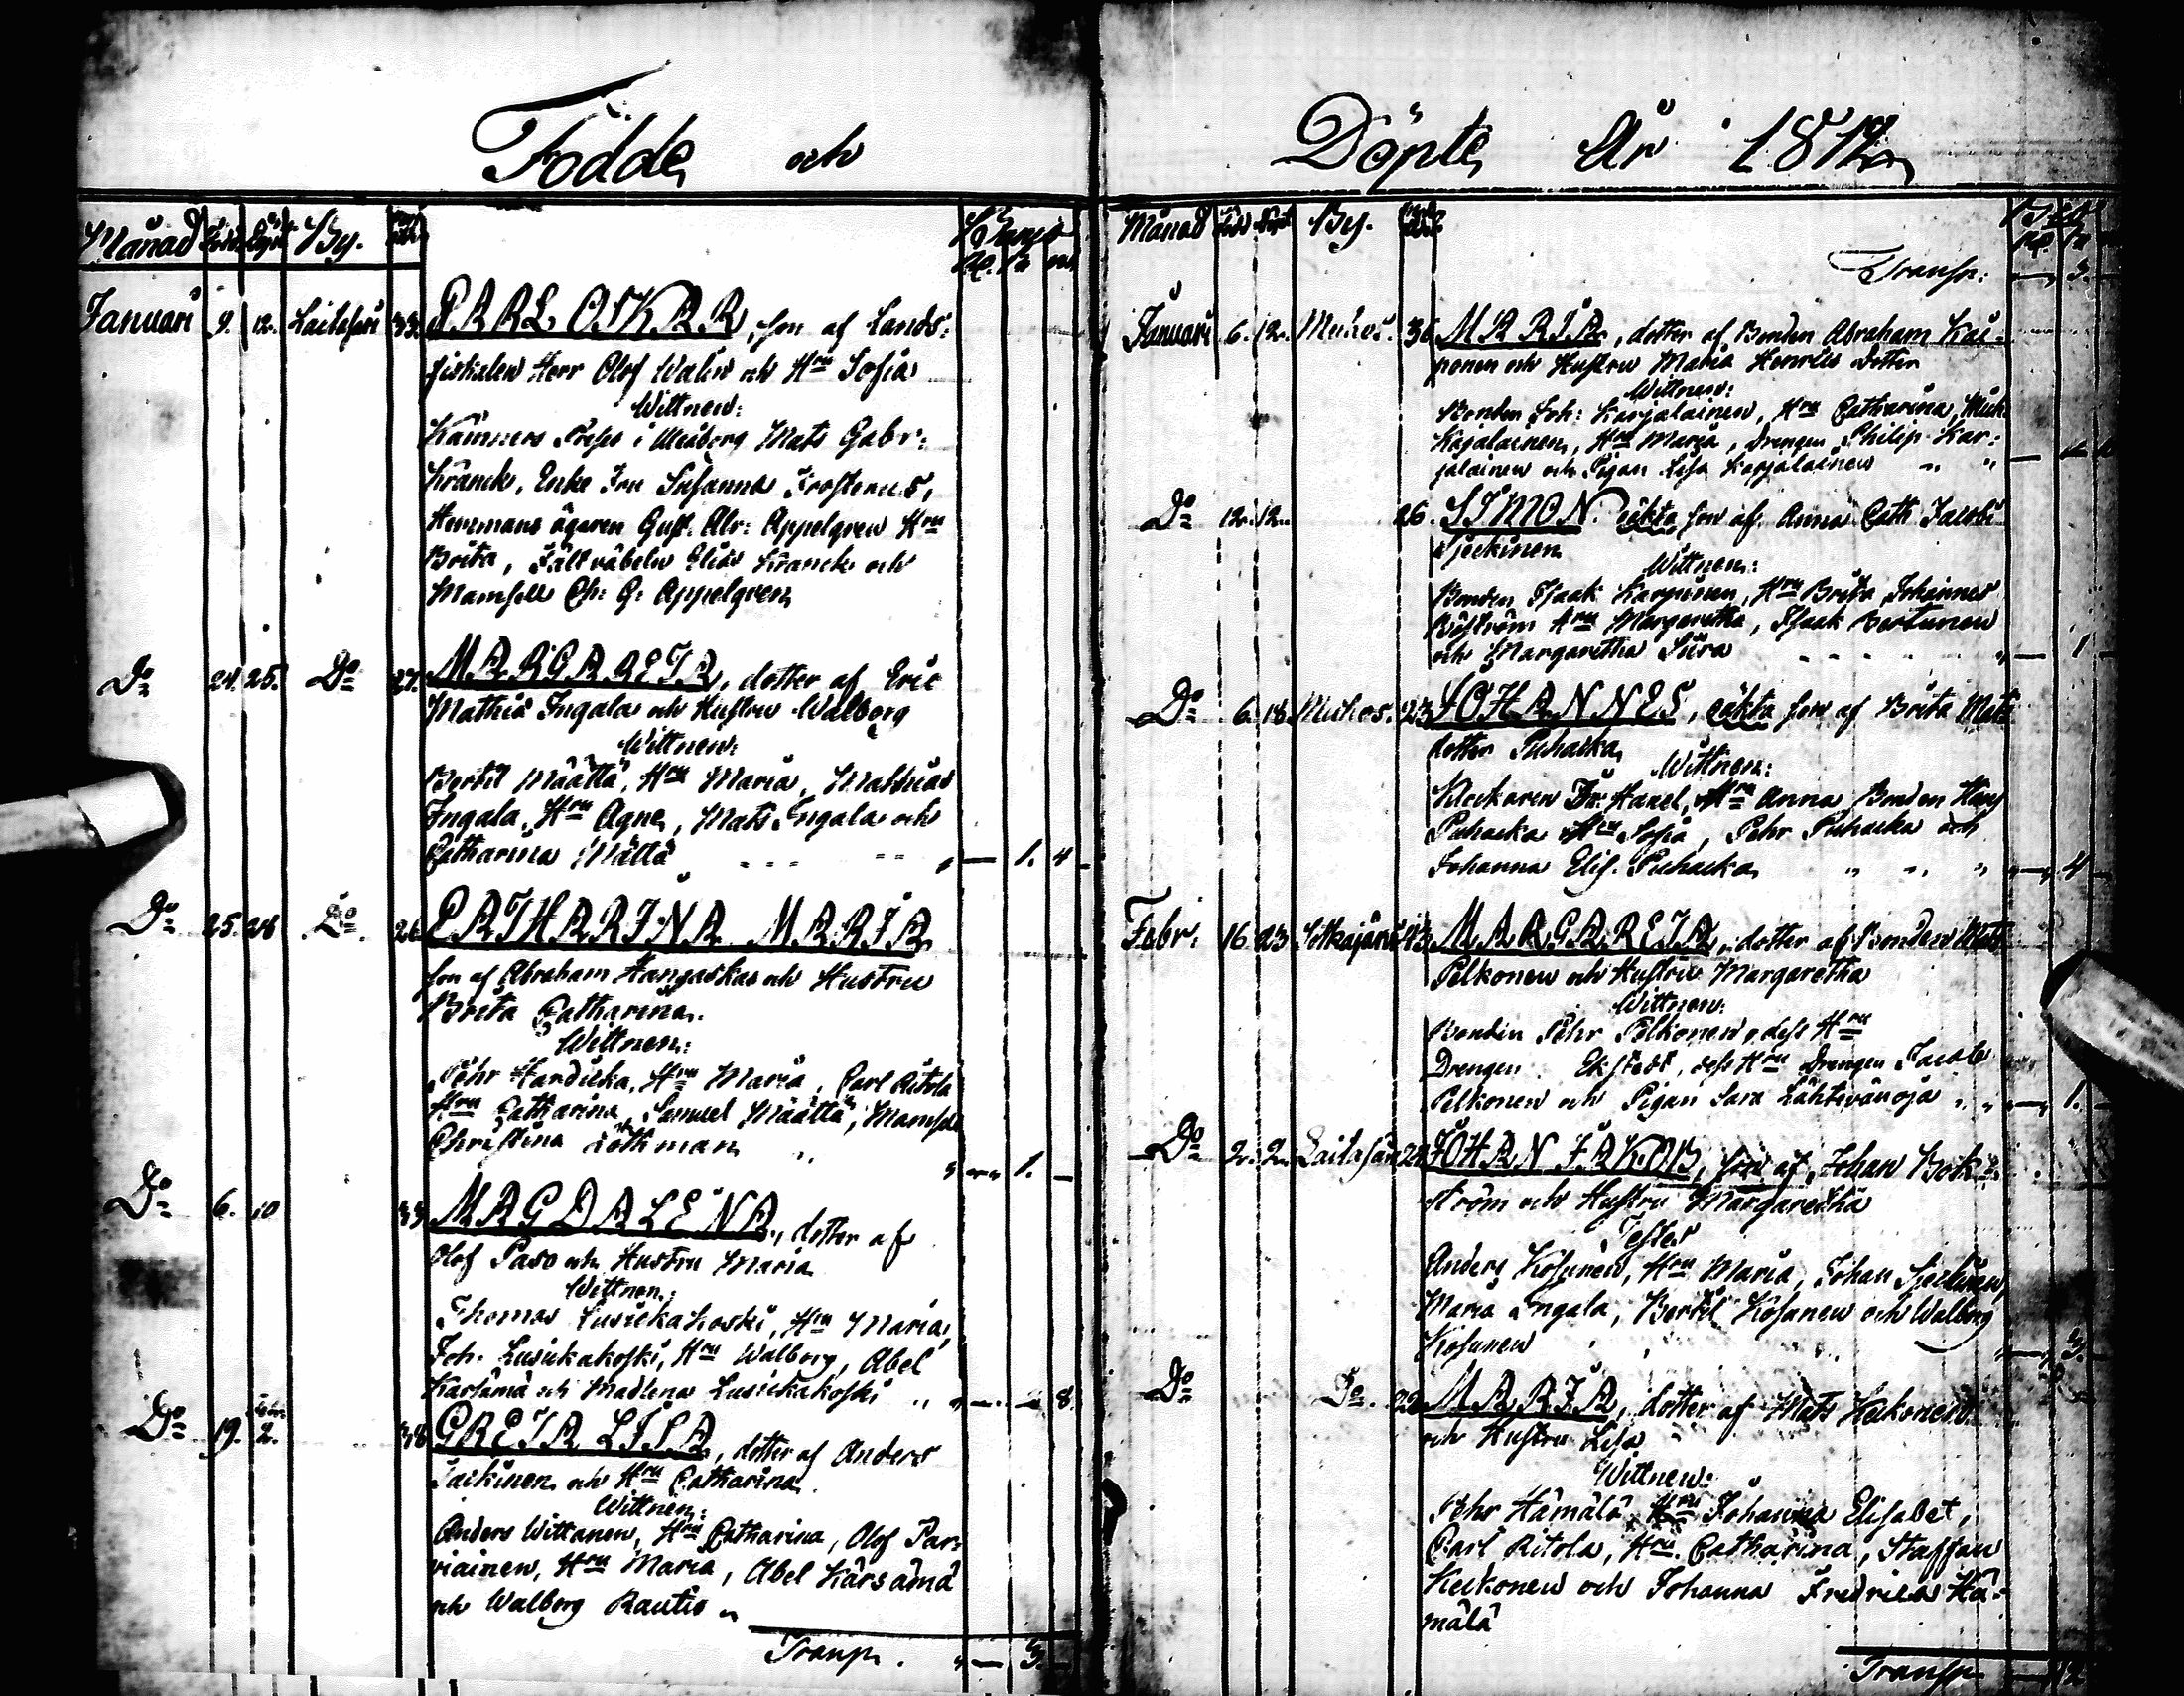 Födde och
Månad Född Döpt By.
Januari 9. 12. Laitasari 33. CARL OSKAR, son af Lands-
fiskalen Herr Olof Walin och Hru Sofia
Wittnen:
Kämners Preses i Uleåborg Mats Gabr:
Kranck, Enke Fru Susanna Frosterus,
Hemmans ägaren Gust. Alr: Appelgren Hru
Brita, Fältväbeln Elias Kranck och
Mamsell Ch: G: Appelgren
Do 24. 25. Do 27. MARGARETA, dotter af Eric
Mathis Ingala och Hustru Walborg
Wittnen:
Bertil Määttä, Hru Maria, Mathias
Ingala, Hru Agne, Mats Ingala och
Catharina Mättä „ — 1. 4
Do 25. 28 Do 26 CATHARINA MARIA
son af Abraham Kangaskas och Hustru
Brita Catharina.
Wittnen:
Pehr Handicka, Hru Maria, Carl Ritola
Hru Catharina, Samuel Määttä, Mamsell
Christina Löthman „ — 1. —
Do 6. 10 33 MAGDALENA, dotter af
Olof Paso och Hustru Maria
Wittnen:
Thomas Lusickakoski, Hru Maria,
Joh. Lusickakoski, Hru Walborg, Abel
Karsämä och Madlena Lusickakoski „ „ — — 8.
Do 19. 2. 38 GRETA LISA, dotter af Anders
Jackinen och Hru Catharina
Wittnen:
Anders Wittanen, Hru Catharina, Olof Par-
viainen, Hru Maria, Abel Kärsämä
och Walborg Rautio „
Transp. „ — 3. —
Döpte År 1812
Månad Född Döpt By.
Transp: — 3. —
Januari 6. 12. Muhos. 36 MARIA, dotter af Bonden Abraham Kai-
nonen och Hustru Maria Henrics dotter
Wittnen:
Bonden Joh: Karjalainen, Hru Catharina, Mich
Kajalainen, Hru Maria, Drengen Philip Kar-
jalainen och Pigan Lisa Karjalainen „ „ —
Do 12. 12. 26. SIMON oäkta son af Anna Cath Jacobs
Sjeckinen
Wittnen:
Bonden Isaak Karpinen, Hru Brita, Johannes
Boström Hru Margaretha, Isaak Bertunen
och Margaretha Sura „ — 1 —
Do 6. 18. Muhos. 23 JOHANNES, oäkta son af Brita Mats
dotter Puhacka
Wittnen:
Klockaren Fr: Haxel, Hru Anna Bonden Hans
Puhacka Hru Sofia, Pehr Puhacka och
Johanna Elis. Puhacka „ „ „ „ — 4 —
Febr. 16. 23 Sotkajärvi 43 MARGARETA, dotter af Bonden Mats
Pelkonen och Hustru Margaretha
Wittnen:
Bonden Pehr Pelkonen, dess Hru
Drengen Ekstedt, dess Hru Drengen Jacob
Pelkonen och Pigan Sara Lähtevänoja „ „ — 1. —
Do 2. 2. Laitasari 22 JOHAN JAKOB, son af Johan Bok-
ström och Hustru Margaretha
Testes
Anders Kosunen, Hru Maria, Johan Sjeckinen,
Maria Ingala, Bertil Kosunen och Walborg
Kosunen — 3.
Do Do. 22 MARIA, dotter af Mats Keckonen
och Hustru Lisa
Wittnen:
Pehr Hämälä Hru Johanna Elisabet,
Carl Ritola, Hru Catharina, Staffan
Keckonen och Johanna Fredrica Hä-
mälä
Transp —